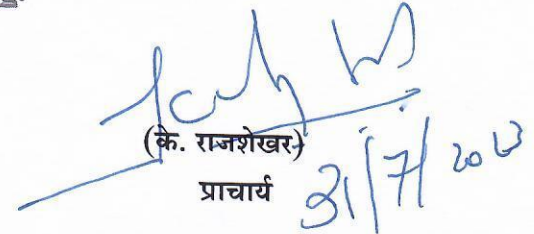 (के. राजशेखर)
प्राचार्य
31/7/2023